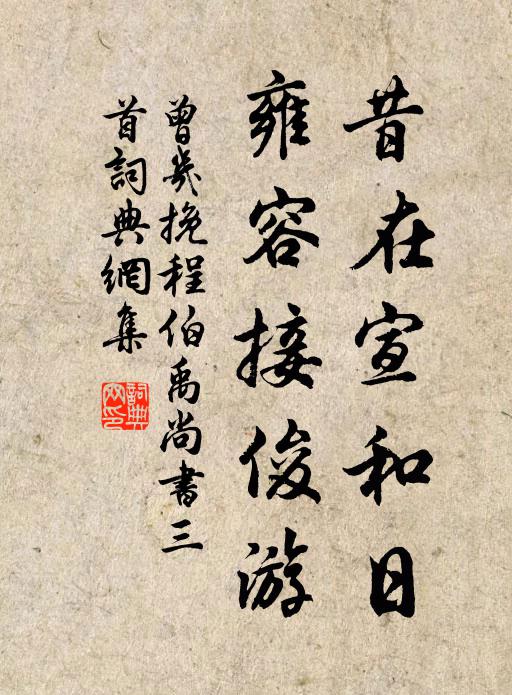 昔在宣和日
雍容接俊游
曾幾挽程伯禹尚書三
首詞典網集
詞典
網印